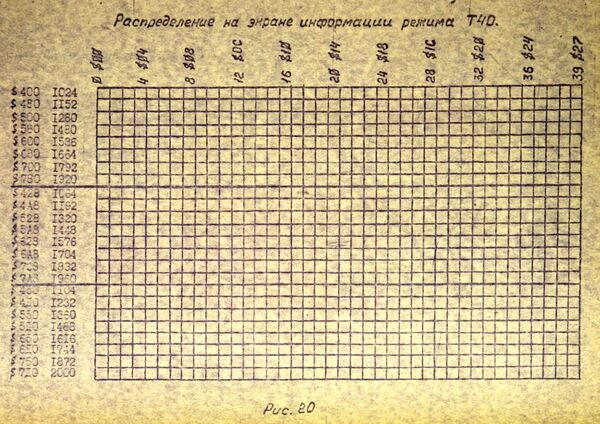 Распределение на экране информации режима Т40.
0 $00
4 $04
8 $08
12 $0C
16 $10
20 $14
24 $18
28 $1C
32 $20
36 $24
39 $27
$400 I024
$480 II52
$500 I280
$580
$600 I536
$680 I664
$700 I792
$780 I920
$428 I064
$4A8 II92
$528 I320
$5A8 I448
$628 I576
$6A8 I704
$728 I832
$7A8 I960
$450 II04
$4D0 I232
$550 I360
$5D0
$650 I616
$6D0 I744
$750 I872
$7D0 2000
Рис. 20